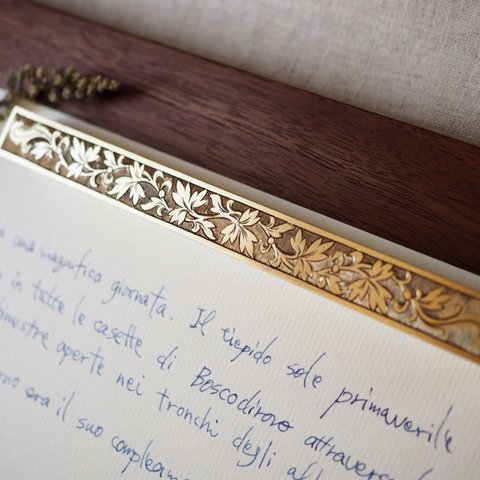 una magnifica giornata. Il tiepido sole primaverile
in tutte le casette di Boscodirovo attraverso
finestre aperte nei tronchi degli
era il suo